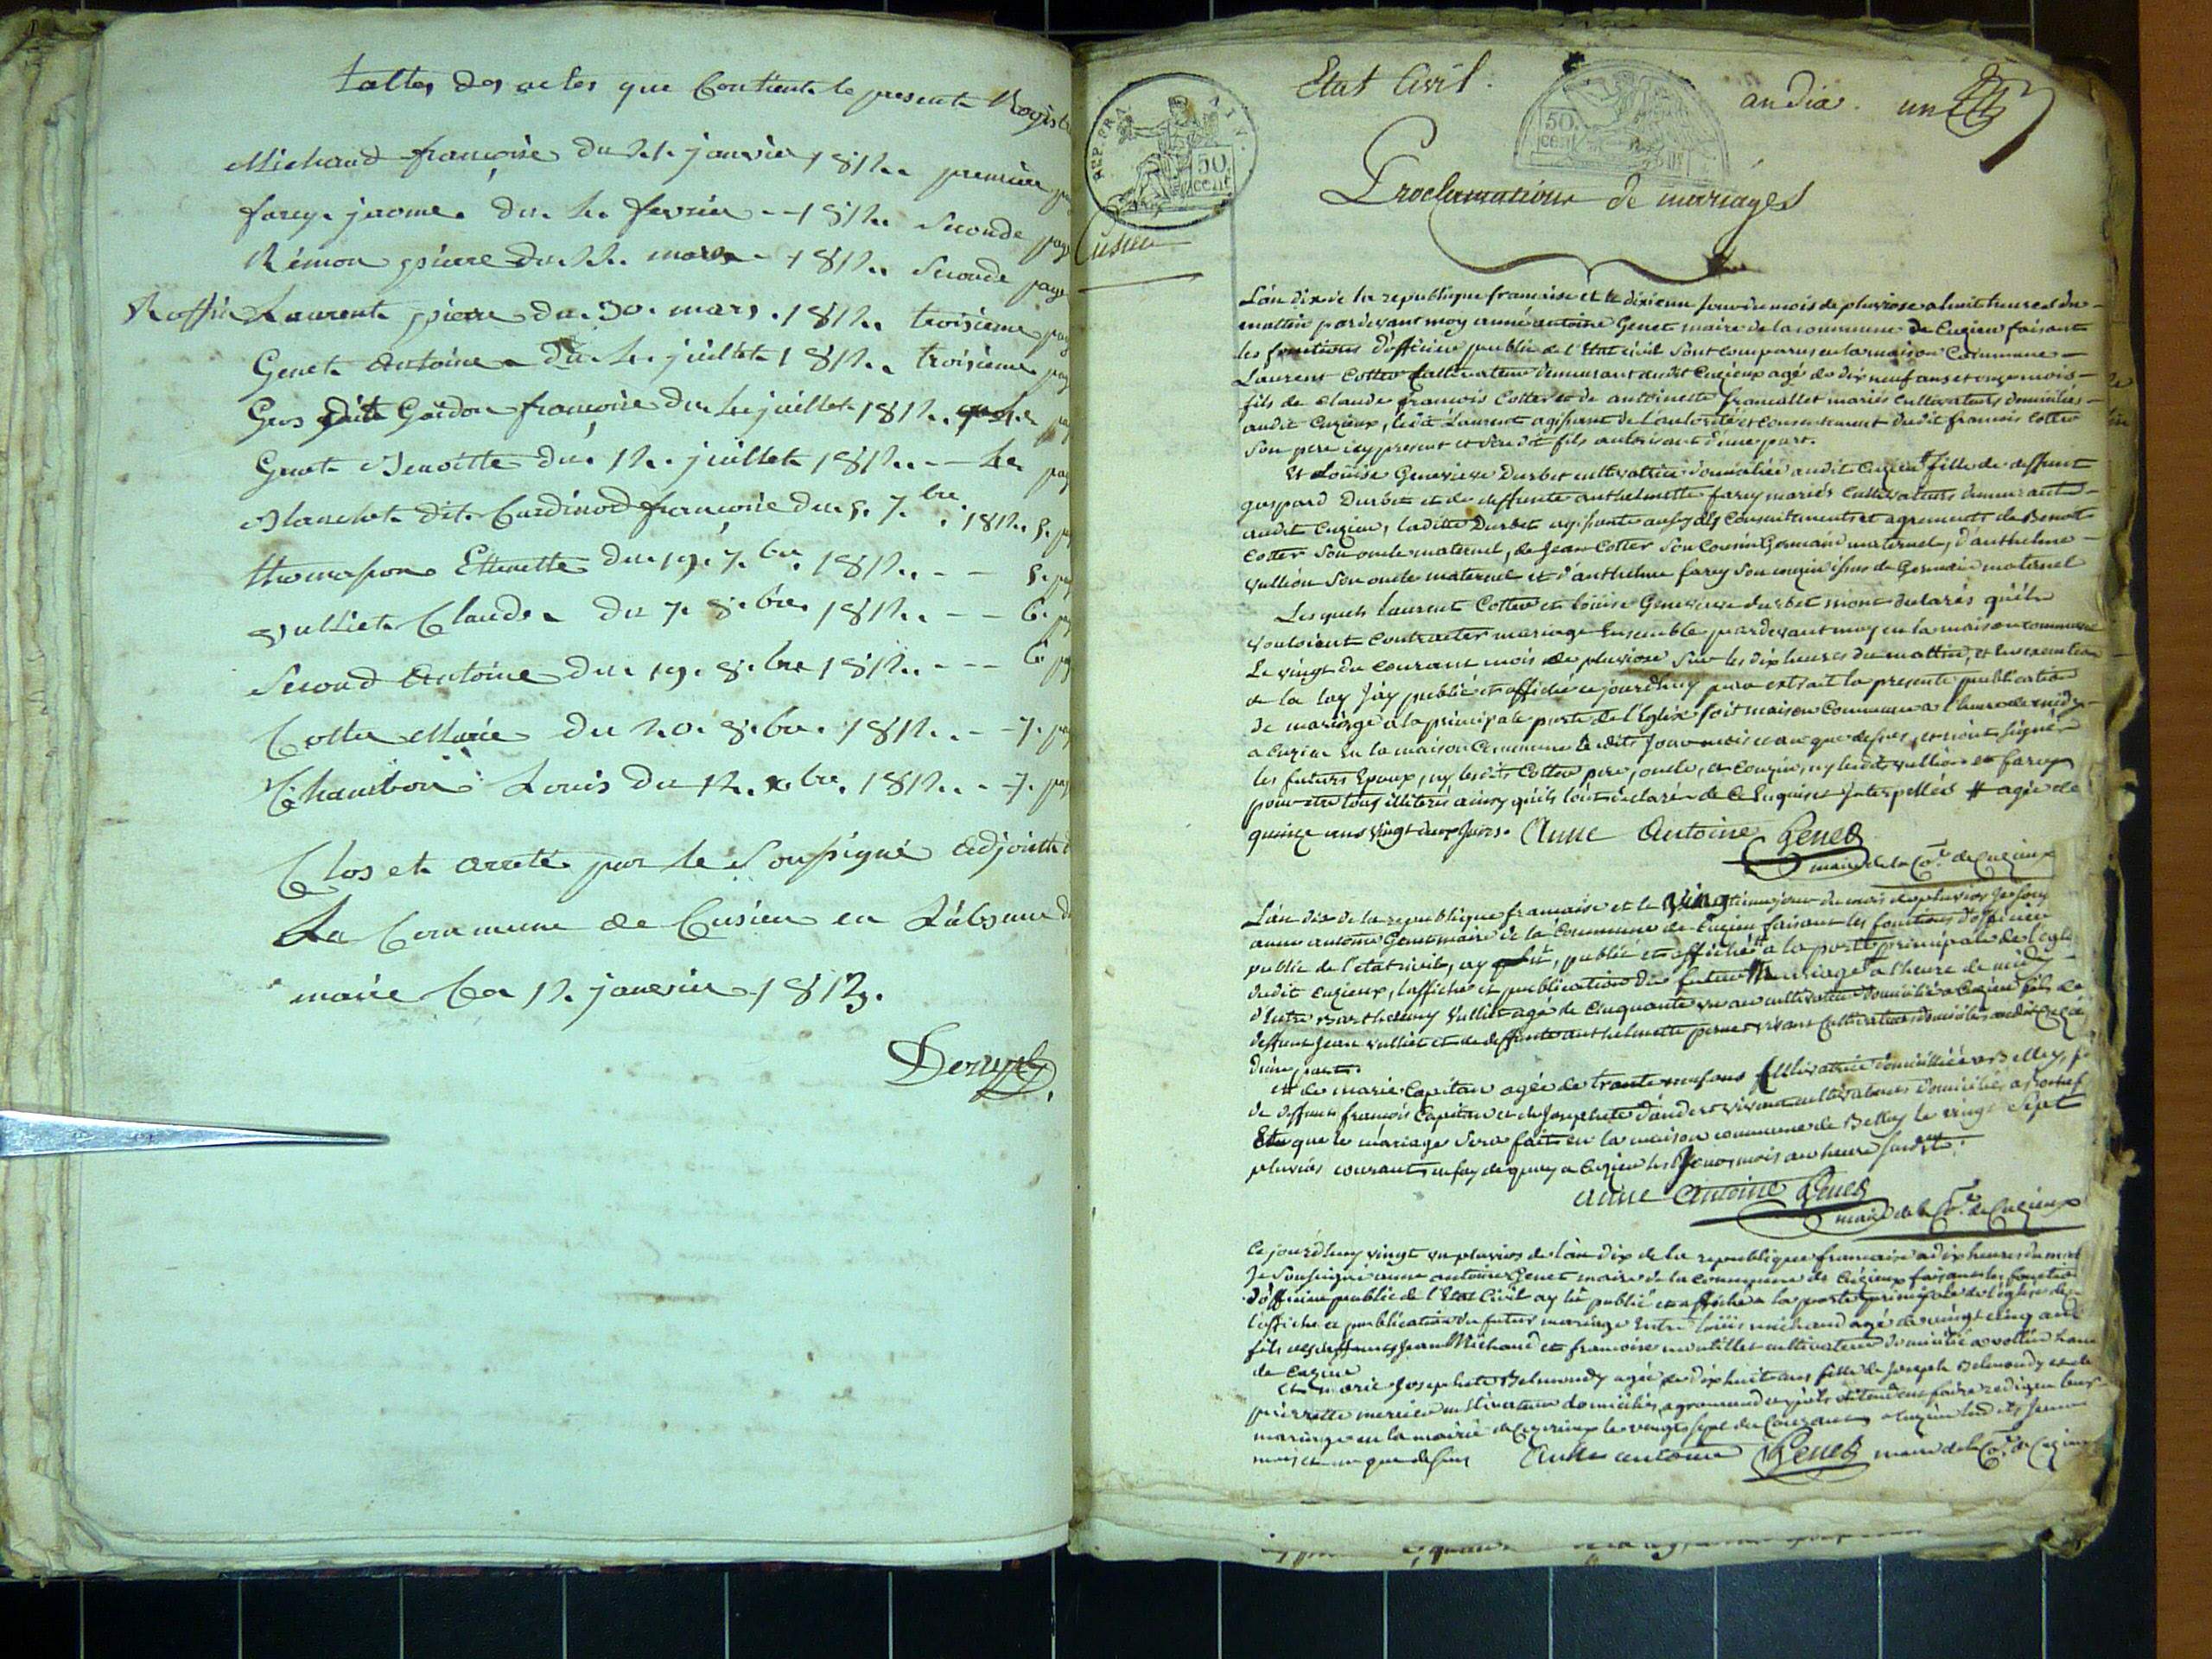 tables des actes que Contient le present Regist
Michaud françoise du 21. janvier 1812. premiere
farey jaome. du 2. fevrier - 1812. Seconde page
Rémon pierre du 22. mars - 1812. Seconde page
Roffin Laurent pierre du 30. mars. 1812. troisieme
Genet Antoine du 2. juillet 1812. troisieme
Gros dit Goidon francoise du juillet 1812.
Genet Benoitte du 12. juillet 1812. --
Blanchet dit Cardinod françoise du 5. 7.bre 1812. 5.
thomasson Etiennette du 19. 7.bre 1812. -- 5.
vulliet Claude du 7. 8.bre 1812. -- 6.
Second Antoine du 19. 8.bre 1812. --- 6
Cotter Marie du 20. 8.bre 1812. -- 7.
Chambon Louis du 12. xbre. 1812. - 7.
Clos et arreté par le Soussigné adjoint
La Commune de Cusieu en l'absence
maire Ce 12. janvier 1813.
Etat Civil. an dix. un
REP. FRA
50 cent
50. cent
Cusieu
Proclamations de mariages
L'an dix de la republique francaise et le dixieme jour du mois de pluviose a huit heures du
mattin pardevant moy anne antoine Genet maire de la commune de Cuzieu faisant
les fonctions d'officier public de l'Etat civil sont comparus en la maison Commune
Laurent Cotter Cultivateur demeurant audit Cuzieux agé de dix neuf ans et onze mois
fils de Claude francois Cotter et de antoinette francallet mariés cultivateurs domiciliés
audit Cuzieux, ledit Laurent agissant de l'autorité et consentement dudit francois Cotter
son pere icy present et sondit fils autorisant d'une part.
Et Louise Genevieve Durbet cultivatrice domiciliée audit Cuzieu # fille de deffunt
gaspard Durbet et de deffunte anthelmette farey mariés cultivateurs demeurant
audit Cuzieu, laditte Durbet agissante Consentiments et agrements de Benoit
Cotter son oncle maternel, de Jean Cotter son Cousin Germain maternel, d'anthelme
vullion son oncle maternel et d'anthelme farey son couzin issus de Germain maternel
Lesquels Laurent Cotter et Louise Genevieve durbet mont declarés qu'ils
vouloient Contracter mariage Ensemble pardevant moy en la maison commune
Le vingt du courant mois de pluviose sur les dix heures du mattin, et en execution
de la loy J'ay publié et affiché cejourdhuy par extrait la presente publication
de mariage a la principale porte de l'Eglise soit maison Commune a l'heure de midy
a Cuzieu en la maison Commune lesdits Jour mois et an que dessus, et n'ont signés
les futurs Epoux, ny lesdits Cotter pere, oncle, et Couzin, ny lesdits vullion et farey
pour etre tous illiterés ainsy qu'ils l'ont declaré de ce Enquis et Interpellés # agée de
quinze ans vingt deux jours. Anne Antoine Genet
maire de la Cne de Cuzieux
L'an dix de la republique francaise et le vingtieme jour du mois de pluviose Je soussigné
anne antoine Genet maire de la Commune de Cuzieu faisant les fonctions d'officier
public de l'etat civil, ay publié et affiché a la porte principale de l'egl
dudit Cuzieux, l'affiche et publication du futur mariage a l'heure de midy
d'Entre Barthelemy Vulliet agé de Cinquante un an cultivateur domicilié a Cuzieu fils de
deffunt Jean vulliet et de deffunte anthelmette pernet vivant Cultivateurs domiciliés audit Cuzieu
d'une part.
et de marie Capitan agée de trante neuf ans Cultivatrice domiciliée a Belley,
de deffunt francois Capitan et de Josephete vivant cultivateurs domiciliés a
Et que le mariage sera fait en la maison commune de Belley le vingt Sept
pluvios courant en foy de quoy a Cuzieu les Jour mois an heure susdits.
anne antoine Genet
maire de la Cne de Cuzieux
Cejourdhuy vingt un pluvios de l'an dix de la republique francaise a dix heures du mat
Je soussigné anne antoine Genet maire de la commune de Cuzieux faisant les fonctio
d'officier public de l'Etat Civil ay lu publié et affiché a la porte principale de l'eglise de
l'affiche et publication du futur mariage entre Louis michaud agé de vingt cinq ans
fils de deffunt Jean Michaud et francoise cultivateur domicilié a vollien hame
de Cuzieu
Et marie Josephete Belmondy agée de dix huit ans fille de Joseph Belmondy et de
pierrette mercier cultivateurs domiciliés
mariage en la mairie de Cuzieux le vingt sept du Courant, a Cuzieu lesdits Jour
mois et an que dessus Anne antoine Genet maire de la Cne de Cuzieu